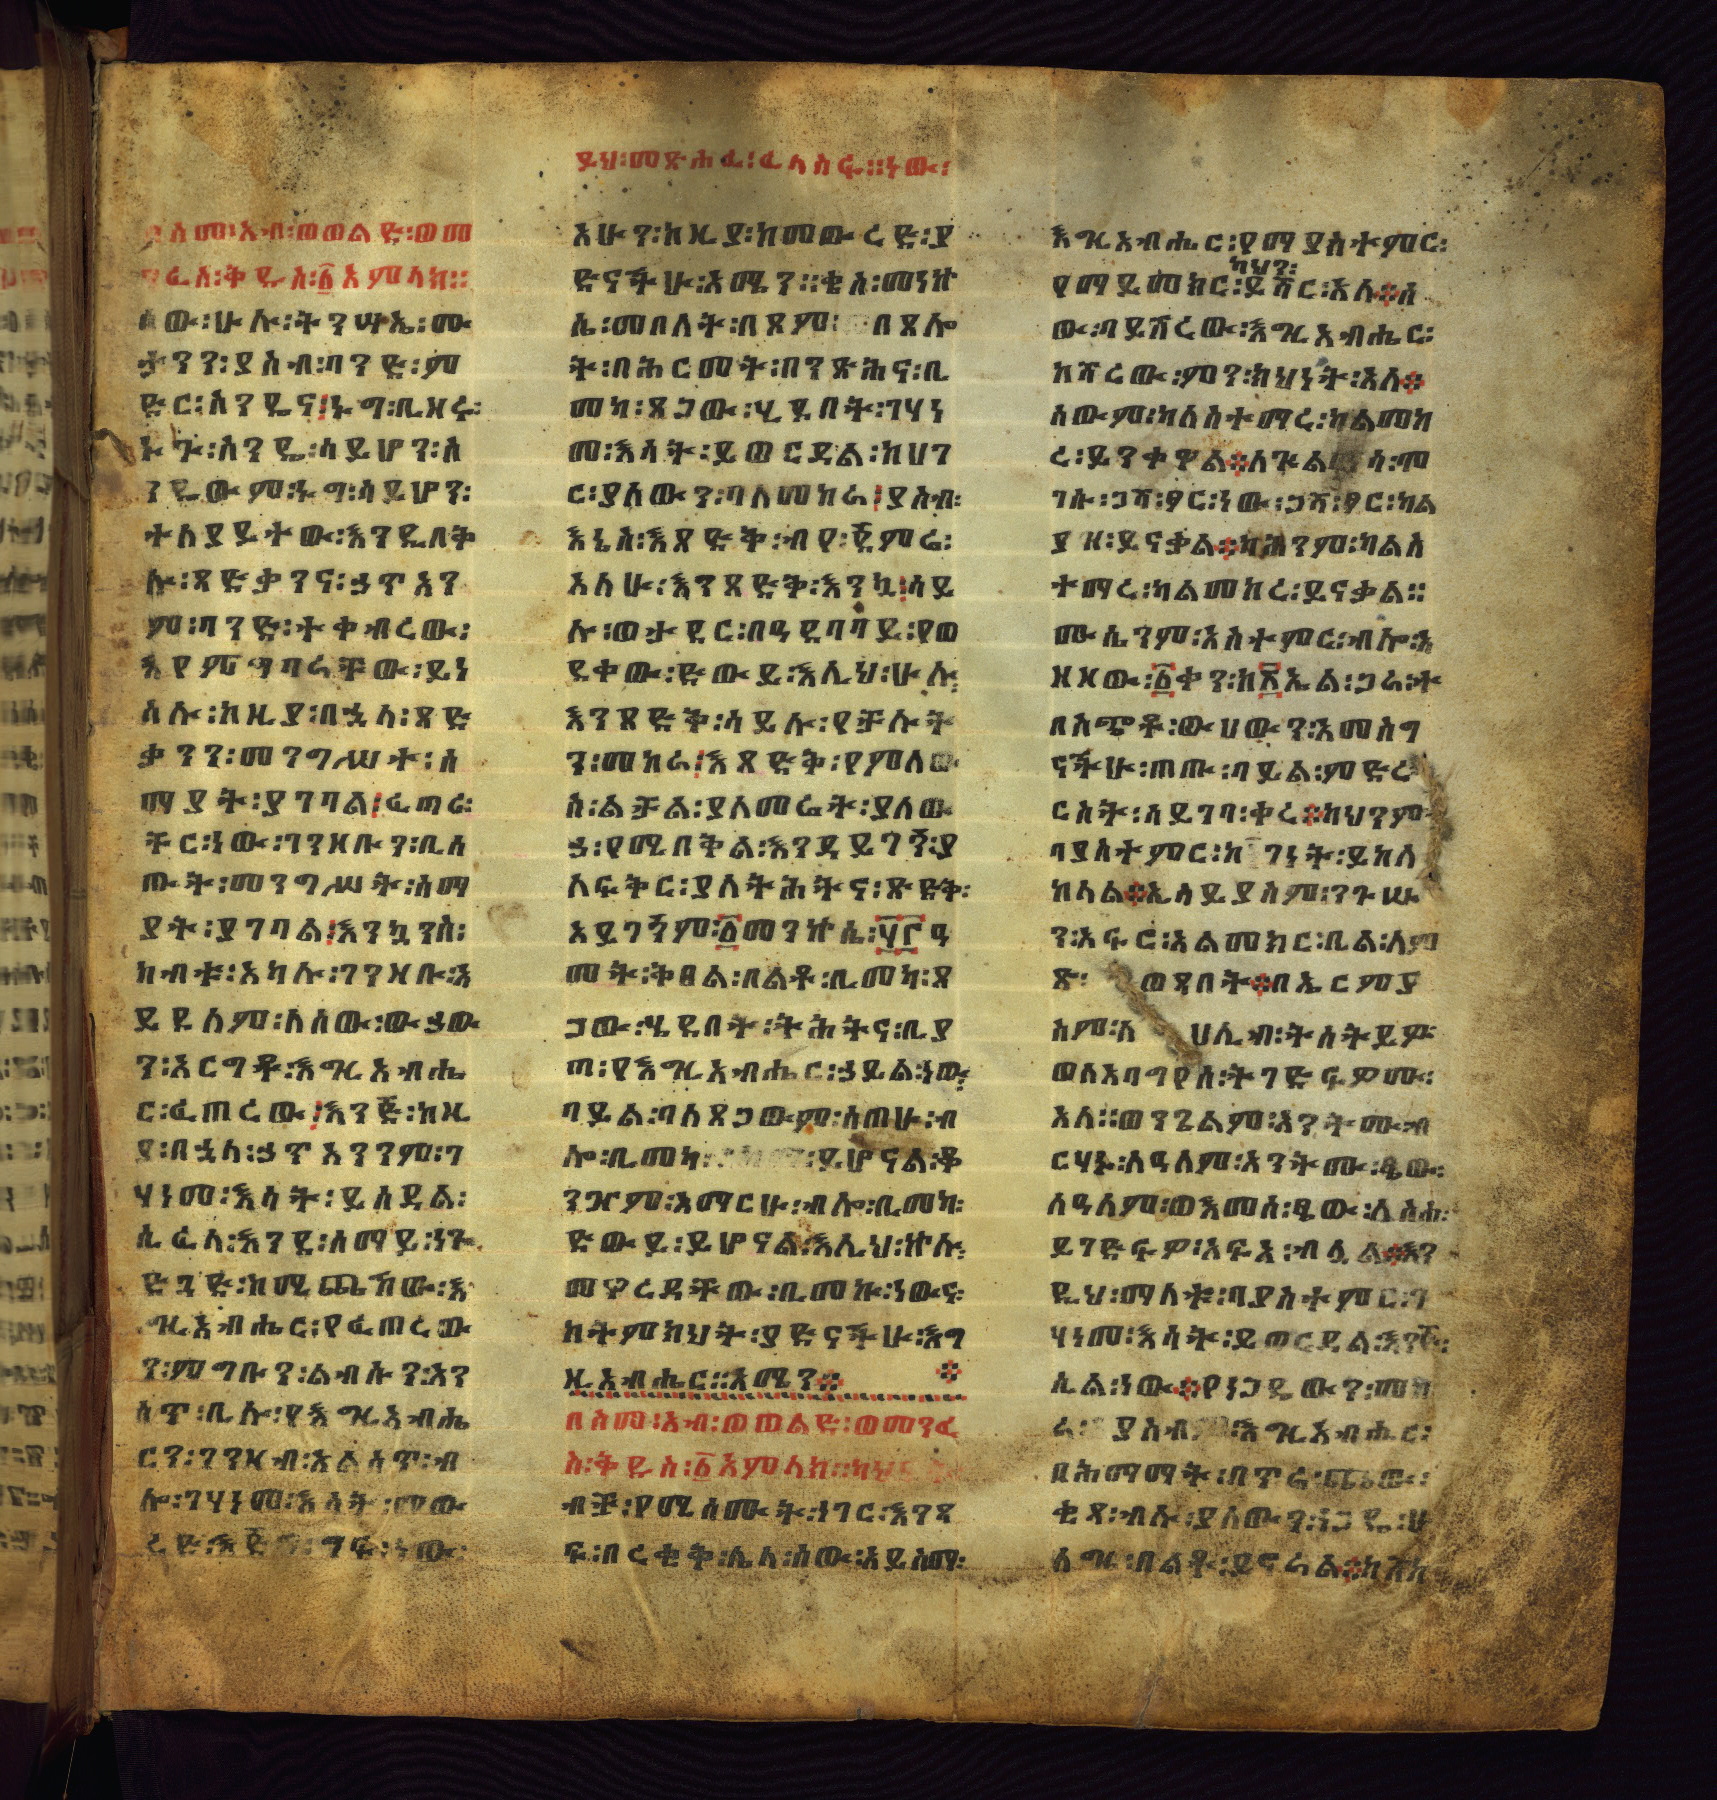 ይህ፡መጽሐፈ፡ፈላስፋ፡፡ነው፡
ስመ፡አብ፡ወወልድ፡ወመ
ፈስ፡ቅዱስ፡፩አምላክ፡፡
ሰው፡ሁሉ፡ትንሣኤ፡ሙ
ታንን፡ያስብ፡ባንድ፡ም
ድር፡ስንዴና፡ኑግ፡ቢዘሩ፡
ኑጉ፡ስንዴ፡ላይሆን፡ስ
ንዴውም፡ኑግ፡ላይሆን፡
ተለያይተው፡እንዲበቅ
ሉ፡ጻድቃንና፡ኃጥአን
ም፡ባንድ፡ተቀብረው፡
እየምግባራቸው፡ይነ
ሳሉ፡ከዚያ፡በኋላ፡ጻድ
ቃንን፡መንግሥተ፡ሰ
ማያት፡ያገባል፡ፈጣሪ፡
ቸር፡ነው፡ገንዘቡን፡ቢሰ
ጡት፡መንግሥት፡ሰማ
ያት፡ያገባል፡እንኳንስ፡
ከብቱ፡አካሉ፡ገንዘቡ፡አ
ይደለም፡ለሰው፡ውኃው
ን፡አርግቶ፡እግዚአብሔ
ር፡ፈጠረው፡እንጅ፡ከዚ
ያ፡በኋላ፡ኃጥአንንም፡ገ
ሃነመ፡እሳት፡ይሰዳል፡
ሲፈላ፡እንደ፡ሰማይ፡ነጐ
ድጓድ፡ከሚጮኸው፡እ
ግዚአብሔር፡የፈጠረው
ን፡ምግቡን፡ልብሱን፡እን
ስጥ፡ቢሉ፡የእግዚአብሔ
ርን፡ገንዘብ፡አልሰጥ፡ብ
ሎ፡ገሃነመ፡እሳት፡መው
ረድ፡እጅግ፡ግፍ፡ነው፡
እሁን፡ከዚያ፡ከመውረድ፡ያ
ድናችሁ፡አሜን፡፡ቂሰ፡መነኵ
ሴ፡መበለት፡በጾም፡በጸሎ
ት፡በሕርመት፡በንጽሕና፡ቢ
መካ፡ጻጋው፡ሂዷበት፡ገሃነ
መ፡እሳት፡ይወርዳል፡ከሀገ
ር፡ያለውን፡ባለመከራ፡ያስብ፡
እኔስ፡እጸድቅ፡ብየ፡ጀምሬ፡
አለሁ፡እንጸድቅ፡እንኳ፡ላይ
ሉ፡ወታደር፡በዓደባባይ፡የወ
ደቀው፡ድውይ፡እሊህ፡ሁሉ፡
እንጸድቅ፡ላይሉ፡የቻሉት
ን፡መከራ፡እጸድቅ፡የምለው
ስ፡ልቻል፡ያለመሬት፡ያለው
ኃ፡የሚበቅል፡እንዳይገኝ፡ያ
ለፍቅር፡ያለትሕትና፡ጽድቅ፡
አይገኝም፡፩መንኵሴ፡፶፫ዓ
መት፡ቅፀል፡በልቶ፡ቢመካ፡ጸ
ጋው፡ሄደበት፡ትሕትና፡ቢያ
ጣ፡የእግዚአብሔር፡ኃይል፡ነው፡
ባይል፡ባለጸጋውም፡ሰጠሁ፡ብ
ሎ፡ቢመካ፡ይሆናል፡ቆ
ንጆም፡አማርሁ፡ብሎ፡ቢመካ፡
ድውይ፡ይሆናል፡እሊህ፡ኵሉ፡
መዋረዳቸው፡ቢመኩ፡ነውና፡
ከትምክህት፡ያድናችሁ፡እግ
ዚአብሔር፡፡አሜን።
በስመ፡አብ፡ወወልድ፡ወመንፈ
ስ፡ቅዱስ፡፩አምላክ፡፡ካህ
ብቻ፡የሚሰሙት፡ነገር፡እንጻ
ፍ፡በረቂቅ፡ሌላ፡ሰው፡አይስማ፡
እግዚአብሔር፡የማያስተምር፡
ካህን፡
የማይመክር፡ይሻር፡አለ።ለ
ው፡ባይሽረው፡እግዚአብሔር፡
ከሻረው፡ምን፡ክህነት፡አለ።
ለውም፡ካለስተማረ፡ካልመከ
ረ፡ይንቀዋል።ለጕል፡ላ፡መ
ገሉ፡ጋሻ፡ፀር፡ነው፡ጋሻ፡ፀር፡ካል
ያዘ፡ይናቃል።ካሕንም፡ካልአ
ተማረ፡ካልመከረ፡ይናቃል፡፡
ሙሴንም፡አስተምር፡ብሎ፡አ
ዘዘው፡፩ቀን፡ከእኤል፡ጋራ፡ት
ለአጭቶ፡ውሀውን፡አመስግ
ናችሁ፡ጠጡ፡ባይል፡ምድረ
ርስት፡ሳይገባ፡ቀረ።ካህንም
ባያስተምር፡ከገነት፡ይከለ
ከላል።ኢሳይያስም፡ንጉሡ
ን፡አፍሮ፡አልመክር፡ቢል፡ለም
ጽ፡ወጻበት።በኤርምያ
ስም፡አሀሊብ፡ትስትይም
ወለአባግየሰ፡ትገድፍዎሙ፡
አለ፡፡ወንጌልም፡አንትሙብ
ርሃኑ፡ለዓለም፡አንትሙ፡ፄው፡
ለዓለም፡ወእመሰ፡ፄው፡ለስሐ፡
ይገድፍዎ፡አፍአ፡ብሏል።እን
ዲህ፡ማለቱ፡ባያስተምር፡ገ
ሃነመ፡እሳት፡ይወርዳል፡እንጅ፡
ሲል፡ነው።የነጋዴውን፡መከ
ራ፡ያስብ፡እግዚአብሔር፡
በሕማማት፡በጥሬ፡ጨው፡
ቂጻ፡ብሉ፡ያለውን፡ነጋዴ፡ሁ
ለግዜ፡በልቶ፡ይኖራል።ከሽክ